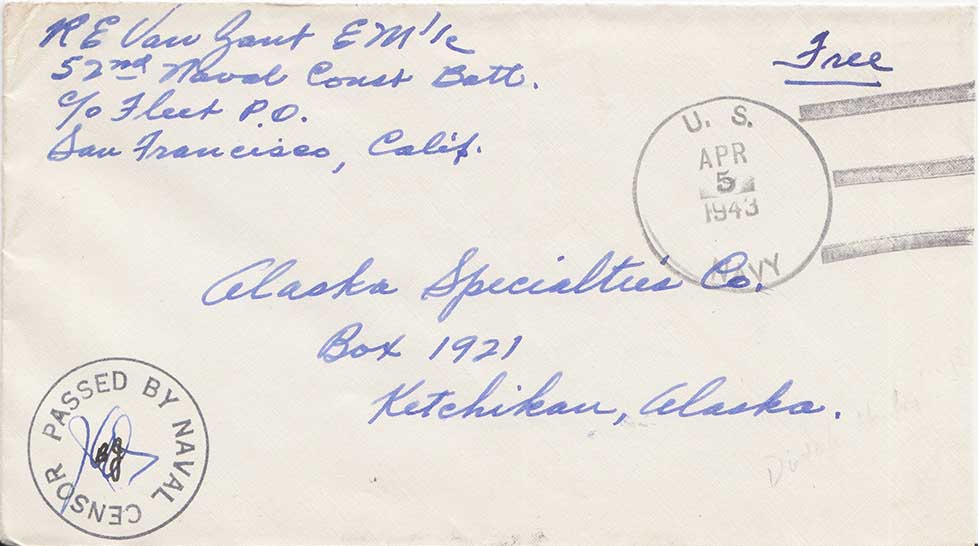 R E Van Zant EM 1/c
52nd Naval Const Batt.
c/o Fleet P.O.
San Francisco, Calif.
Free
U. S. NAVY
APR
5
1943
Alaska Specialties Co.
Box 1921
Ketchikan, Alaska.
PASSED BY NAVAL CENSOR